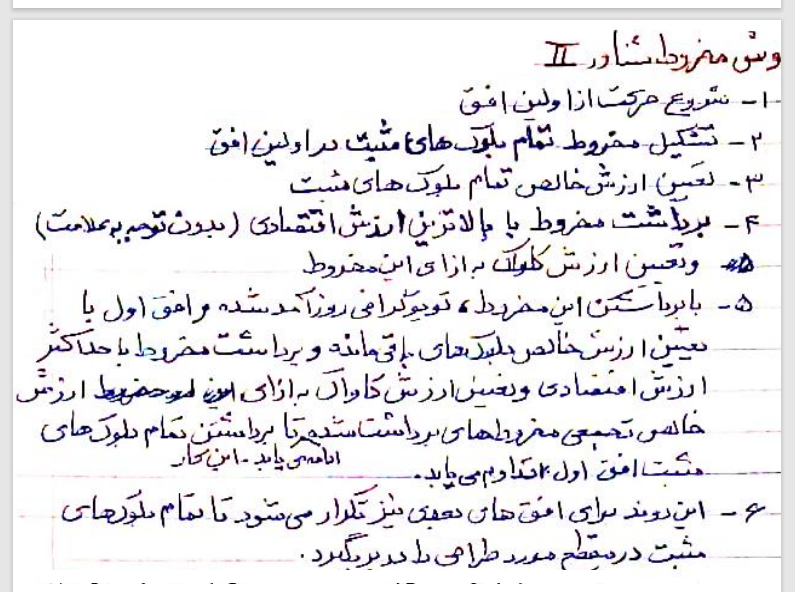 وش مخروط شناور II
۱- شروع حرکت از اولین افق
۲- تشکیل مخروط تمام بلوک های مثبت در اولین افق
۳- تعیین ارزش خالص تمام بلوک های مثبت
۴- برداشت مخروط با بالاترین ارزش اقتصادی (بدون توجه به علامت)
و تعیین ارزش کاواک به ازای این مخروط
۵- با برداشتن این مخروط، توپوگرافی روزآمد شده و افق اول با
تعیین ارزش خالص بلوک های باقی مانده و برداشت مخروط با حداکثر
ارزش اقتصادی و تعیین ارزش کاواک به ازای ارزش
خالص تجمعی مخروط های برداشت شده تا برداشتن تمام بلوک های
ادامه می یابد - این کار
مثبت افق اول تداوم می یابد.
۶- این روند برای افق های بعدی نیز تکرار می شود تا تمام بلوک های
مثبت در مقطع مورد طراحی را در بر بگیرد.